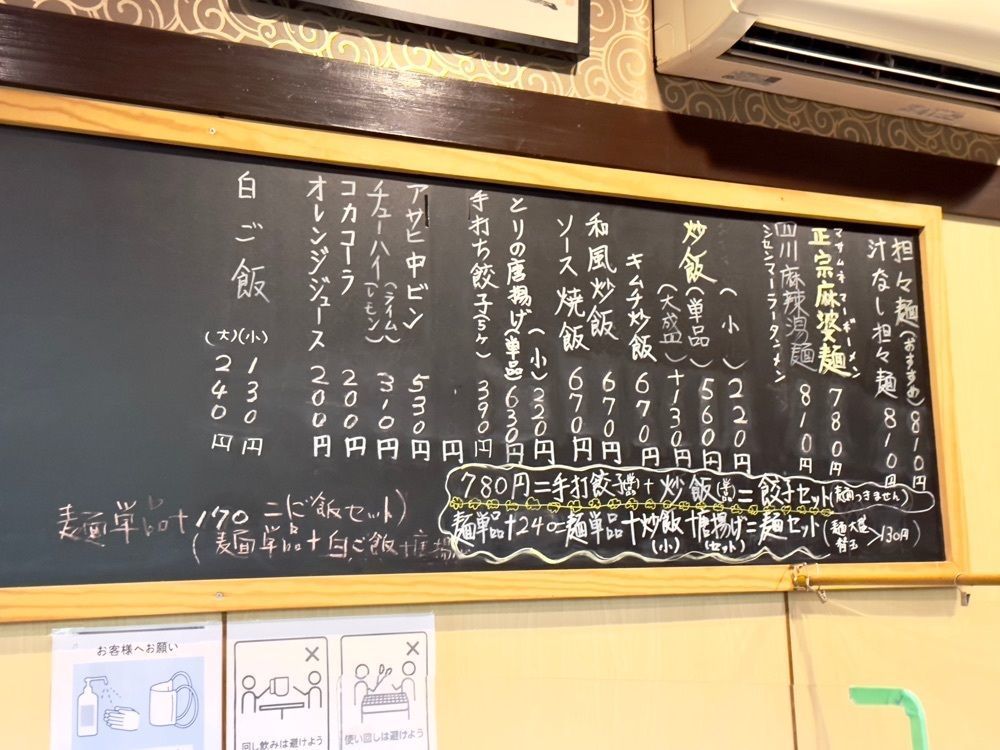 担々麺(おすすめ)810円
汁なし担々麺 810円
マサムネマーボーメン
正宗麻婆麺 780円
四川麻辣湯麺 810円
シセンマーラータンメン
(小) 220円
炒飯(単品) 560円
(大盛) +130円
キムチ炒飯 670円
和風炒飯 670円
ソース焼飯 670円
(小) 220円
とりの唐揚げ(単品) 630円
手打ち餃子(5ヶ) 390円
円
アサヒ中ビン 530円
チューハイ(ライム)(レモン) 310円
コカコーラ 200円
オレンジジュース 200円
白ご飯 (小) 130円
(大) 240円
780円=手打餃子+炒飯=餃子セット(麺つきません)
麺単品+240=麺単品+炒飯(小)+唐揚げ(セット)=麺セット(麺大盛 替玉>130円)
麺単品+170=ご飯セット)
(麺単品+白ご飯+唐揚
お客様へお願い
回し飲みは避けよう
使い回しは避けよう